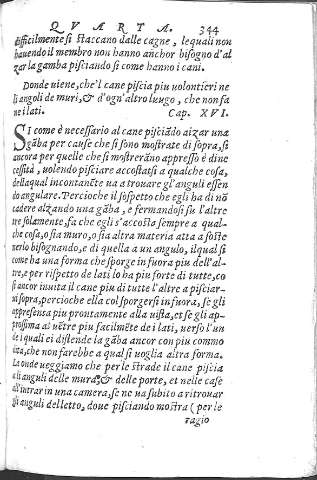 QVARTA. 344
difficilmente si staccano dalle cagne, lequali non
hauendo il membro non hanno anchor bisogno d'al
zar la gamba pisciando si come hanno i cani.
Donde uiene, che'l cane piscia piu uolontieri ne
li angoli de muri, & d'ogn'altro luogo, che non fa
ne i lati. Cap. XVI.
SI come è necessario al cane pisciādo aizar una
gāba per cause che si sono mostrate di sopra, si
ancora per quelle che si mostrerāno appresso è di ne
cessità, uolendo pisciare accostarsi a qualche cosa,
dellaqual incontanēte ua a trouare gl'anguli essen
do angulare. Percioche il sospetto che egli ha di nō
cadere alzando una gāba, e fermandosi su l'altre
tre solamente, fa che egli s'accosta sempre a qual-
che cosa, o sia muro, o sia altra materia atta a soste
nerlo bisognando, e di quella a un angulo, ilqual si
come ha una forma che sporge in fuora piu dell'al-
tre, e per rispetto de lati lo ha piu forte di tutte, co
si ancor inuita il cane piu di tutte l'altre a pisciar-
ui sopra, percioche ella col sporgersi in fuora, se gli
appresensa piu prontamente alla uista, et se gli ap-
prossima al uētre piu facilmēte de i lati, uerso l'un
de i quali ei distende la gāba ancor con piu commo
dita, che non farebbe a qual si uoglia altra forma.
La onde ueggiamo che per le strade il cane piscia
a li anguli delle mura, & delle porte, et nelle case
all'intrar in una camera, se ne ua subito a ritrouar
gli anguli del letto, doue pisciando mostra (per le
ragio